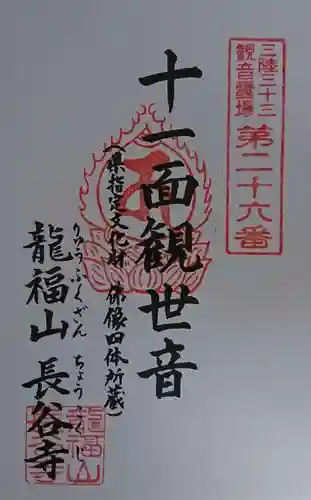 三陸三十三
観音霊場
第二十六番
十一面観世音
(県指定文化財 佛像四体所蔵)
りゅうふくざん ちょうこくじ
龍福山 長谷寺
龍福山